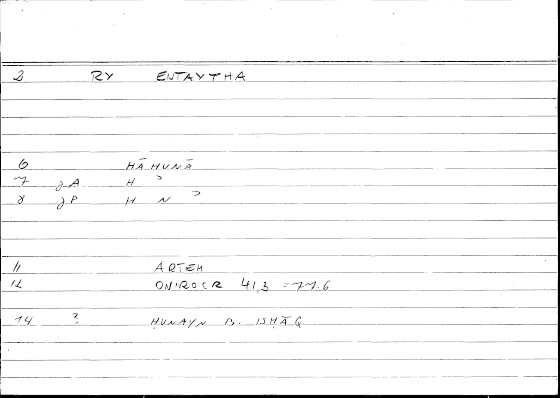 2 RY ENTAYTHA
6 HĀHUNĀ
7 gA H ʾ
8 gP H N ʾ
11 ARTEM
12 ONIROCR 41,3 = 77.6
14 ? ḤUNAYN B. ISḤĀQ